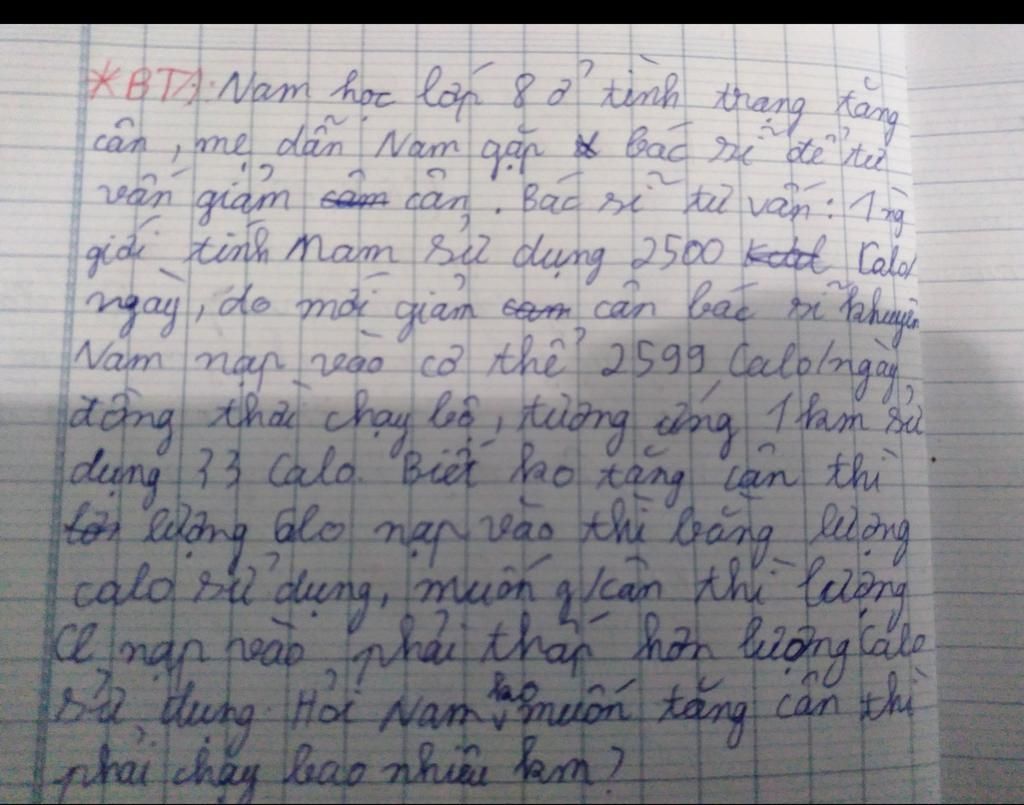 *BTA: Nam học lớp 8 ở tình trạng tăng
cân, mẹ dẫn Nam gặp bác sĩ để tư
vấn giảm cân. Bác sĩ tư vấn: 1 ng
giới tính Nam sử dụng 2500 Calo/
ngày, do mới giảm cân bác sĩ khuyên
Nam nạp vào cơ thể 2599 Calo/ngày
đồng thời chạy bộ, tương ứng 1 km sử
dụng 33 Calo. Biết ko tăng cân thì
lượng calo nạp vào thì bằng lượng
calo sử dụng, muốn g/cân thì lượng
nạp vào phải thấp hơn lượng Calo
sử dụng. Hỏi Nam ko muốn tăng cân thì
phải chạy bao nhiêu km?